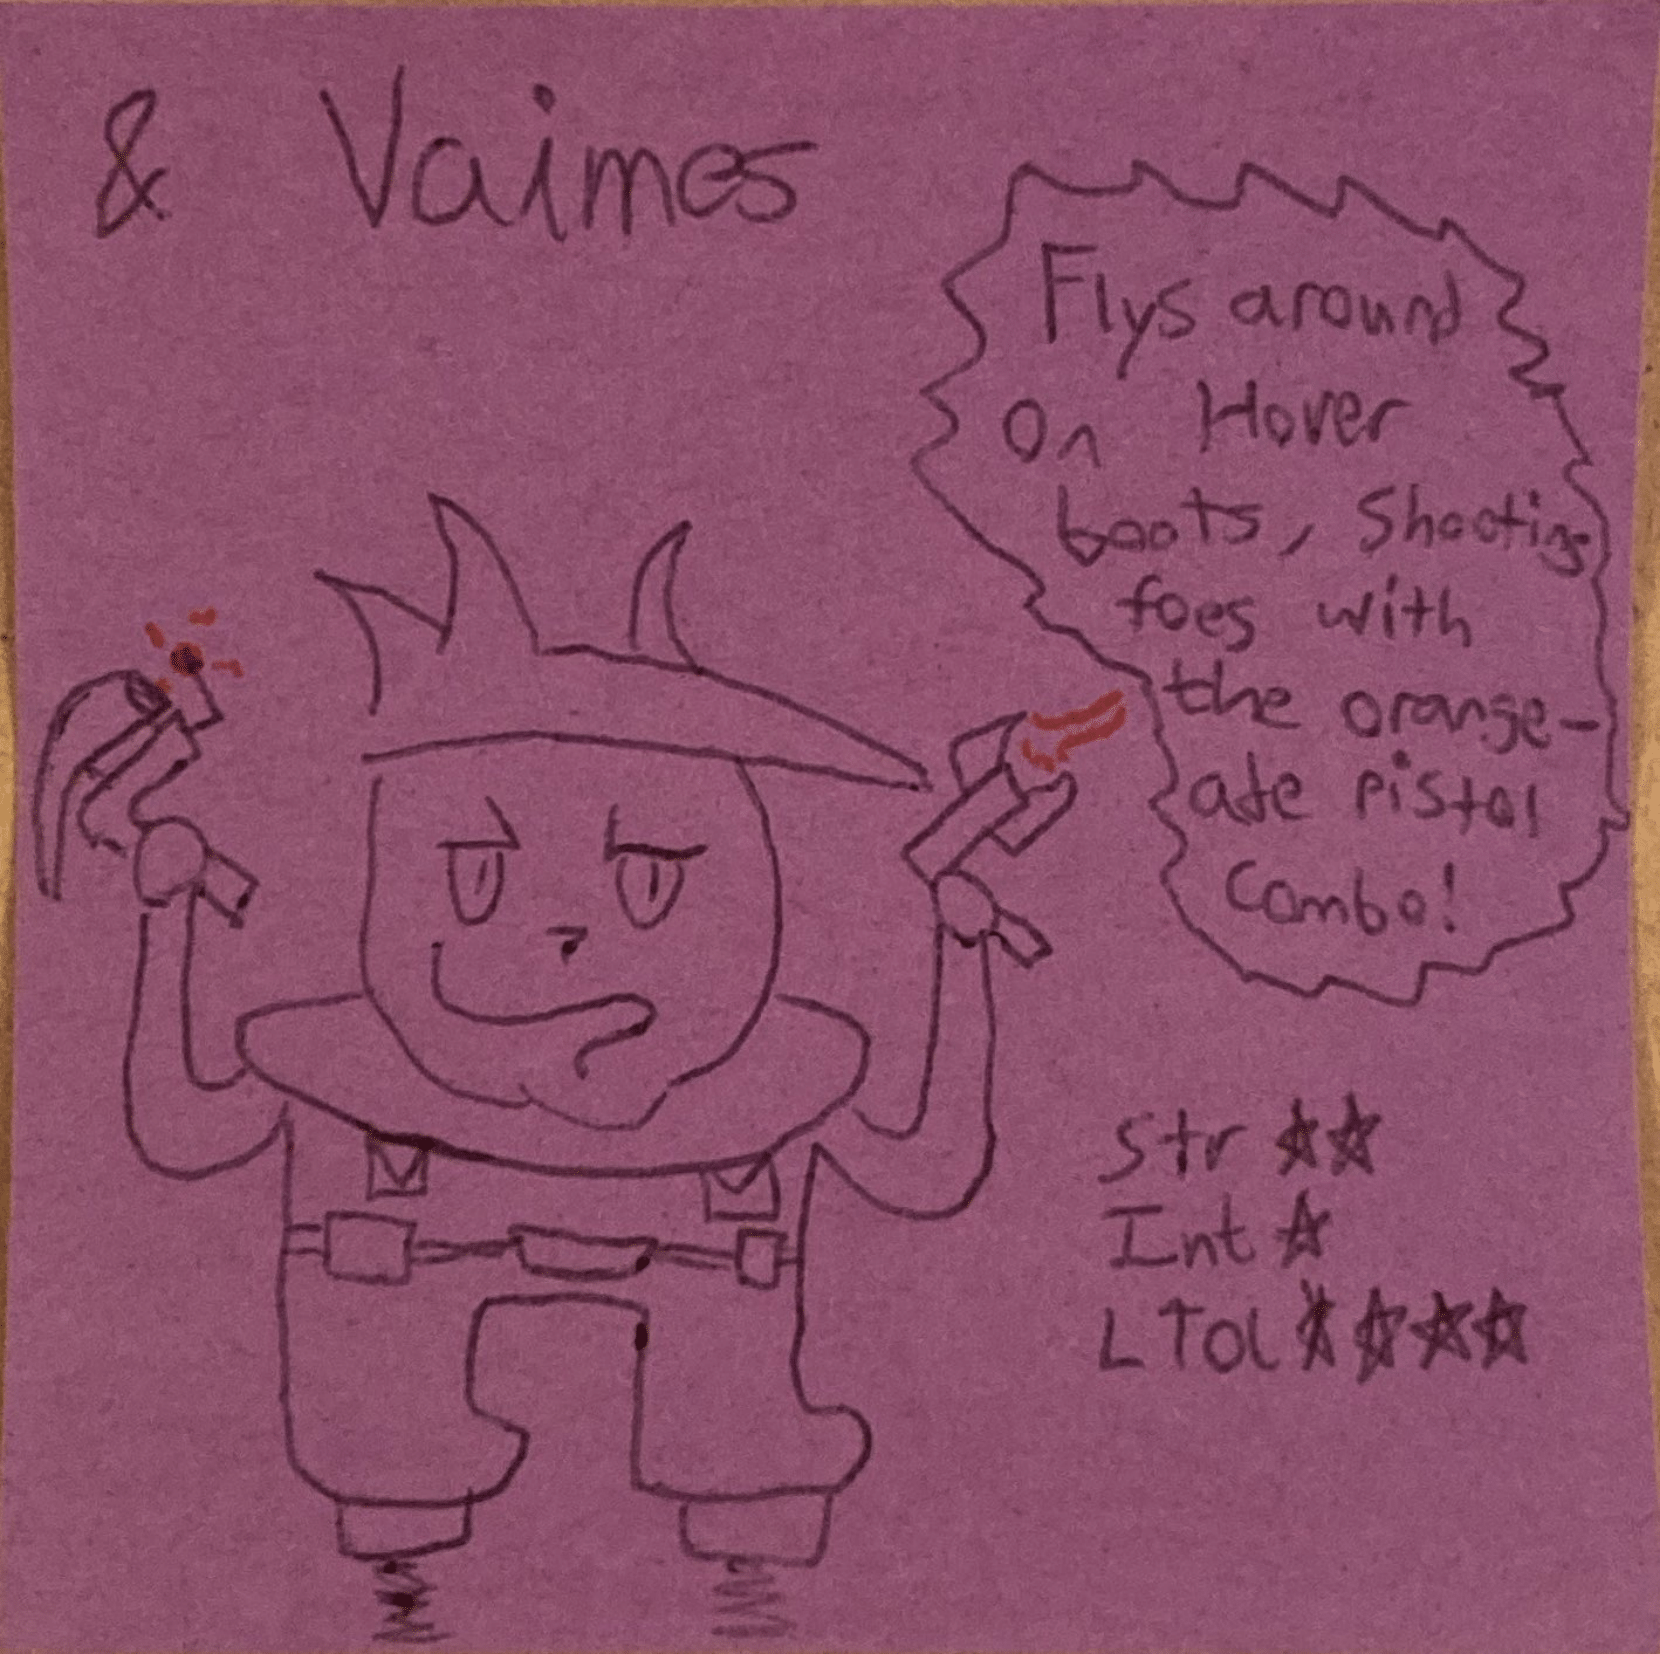 & Vaimes
Flys around
on Hover
boots, Shooting
foes with
the orange-
ade pistol
Combo!
Str ☆☆
Int ☆
LTOL ☆☆☆☆